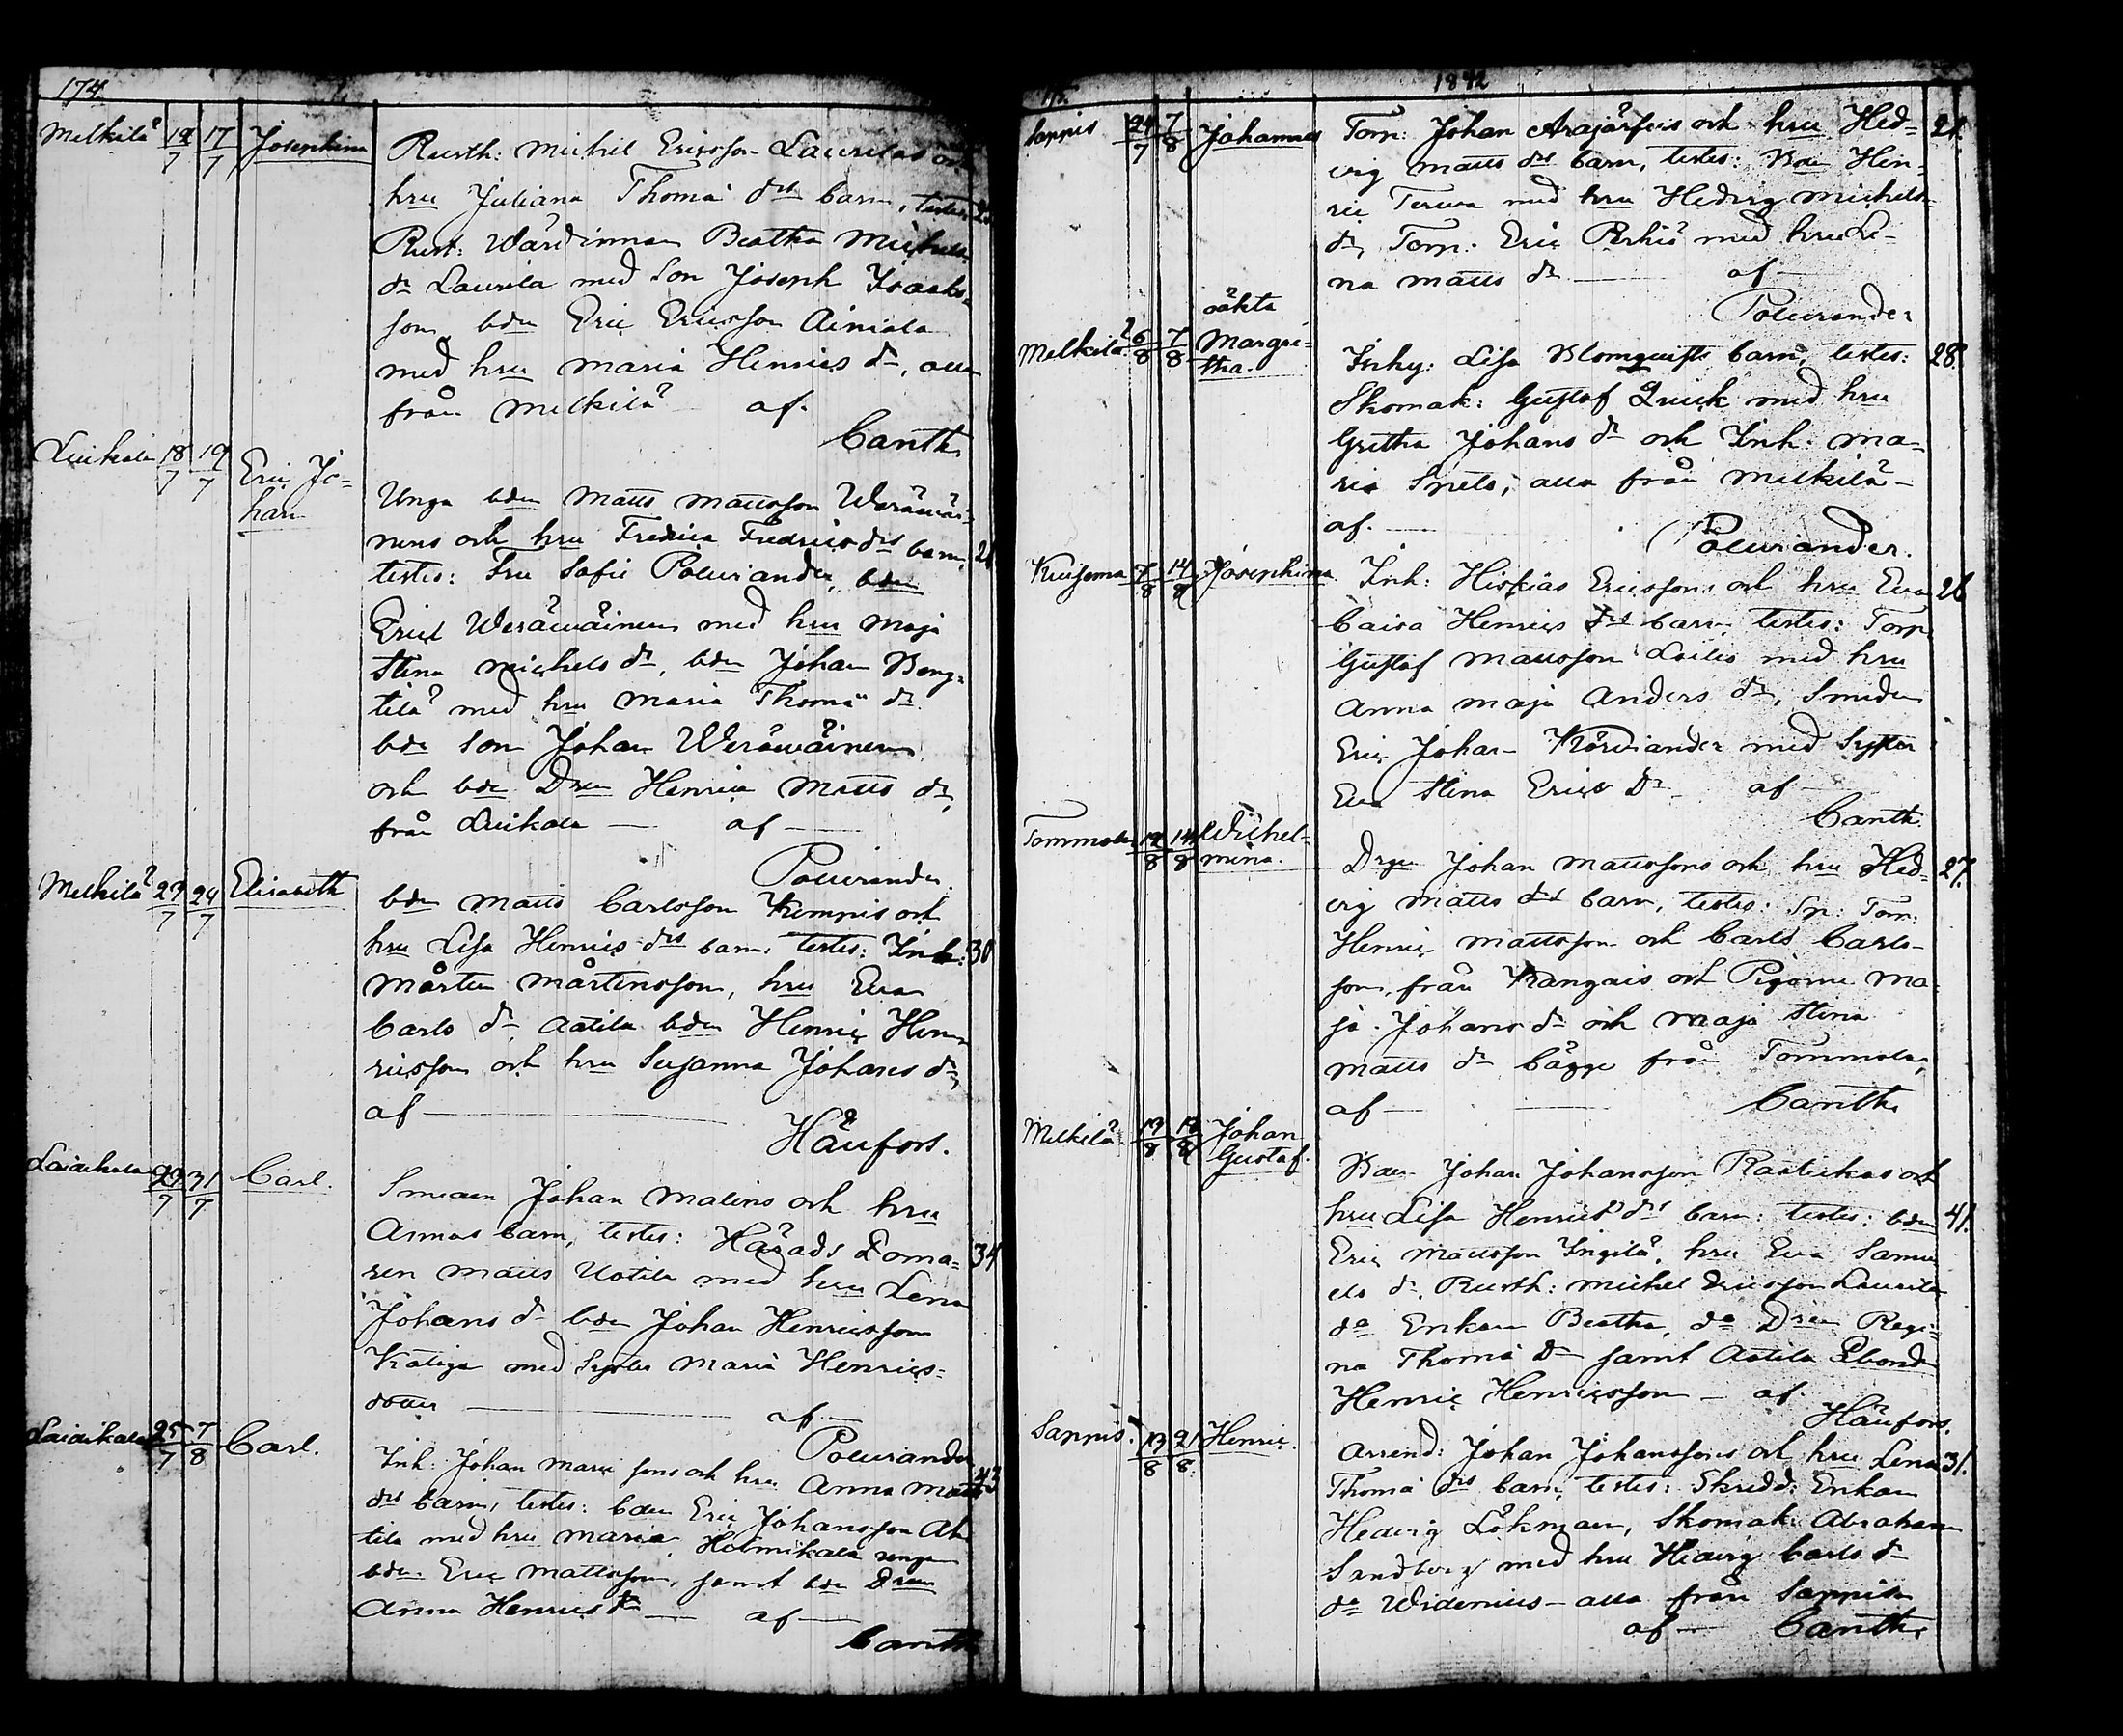 174
Melkilä 12/7 17/7 Josephina
Rusth: Michel Ericsson Laurilas och
hru Juliana Thomæ drs barn, testes
Rust: Wärdinnan Beatha Michels
dr Laurila med Son Joseph Isaaks-
son, bdn Eric Ericsson Ainiala
med hru Maria Henrics dr, alla
från Melkilä af.
Canth
Luikala 18/7 19/7 Eric Jo-
han
Unga bdn Matts Mattsson Weräwäi-
nens och hru Fredrica Fredrics drs barn, 21
testes: Fru Sofie Polviander, bdn
Eric Weräwäinen med hru Maja
Stina Michels dr, bdn Johan Beng-
tilä med hru Maria Thomæ dr
bde Son Johan Weräwäinen
och bde Dren Henrica Matts dr,
från Luikala — af —
Polviander
Melkilä 23/7 24/7 Elisabeth
bdn Matts Carlsson Kempis och
hru Lisa Henrics drs barn, testes: Inh: 30
Mårten Mårtensson, hru Eva
Carls dr Aatila bdn Henric Hen-
ricsson och hru Susanna Johans dr,
af —
Häufors.
Laiaikala 31/7 Carl.
Smeden Johan Malins och hru
Annas barn, testes: Härads Doma- 34
ren Matts Uotila med hru Lena
Johans dr bdn Johan Henricsson
med Syster Maria Henrics-
dotter — af —
Polviander
Laiaikala 25/7 7/8 Carl.
Inh: Johan sons och hru Anna Matts 43
drs barn, testes: bdn Eric Johansson Ah-
tila med hru Maria, unga
bdn Eric Mattsson, samt bde Dren
Anna Henrics dr — af —
Canth
175. 1842
Sappis 24/7 7/8 Johannes
Torp: Johan Arajärfvis och hru Hed- 21.
vig Matts drs barn, testes: Bdn Hen-
ric Terwa med hru Hedvig Michels
dr, Torp: Eric Perkiö med hru Le-
na Matts dr — af —
Polviander
Melkilä 6/8 7/8 oäkta
Margre-
tha.
Inhy: Lisa Blomqvists barn, testes: 28.
Skomak: Gustaf Quick med hru
Gretha Johans dr och Inh: Ma-
ria Snels, alla från Melkilä —
af —
Polviander.
Kuisema 7/8 14/8 Josephina.
Inh: Hiskias Ericssons och hru Eva 26
Caisa Henrics drs barn, testes: Torp
Gustaf Mattsson Lailes med hru
Anna Maja Anders dr, Smeden
Eric Johan Körviander med Syster
Eva Stina Erics dr — af —
Canth.
Tommola 12/8 14/8 Wilhel-
mina.
Drgn Johan Mattssons och hru Hed- 27.
vig Matts drs barn, testes: Sn: Tom:
Henric Mattsson och Carls Carls-
son, från Kangais och Pigorne Ma-
ja Johans dr och Maja Stina
Matts dr bägge från Tommola,
af — Canth
Melkilä 13/8 /8 Johan
Gustaf.
Bdn Johan Johansson Raatikas och
hru Lisa Henrics drs barn: testes: bdn 41.
Eric Mattsson Ingilä, hru Eva Samu-
els dr, Rusth: Michel Ericsson Laurila
do Enkan Beatha, do Dren Regi-
na Thomæ dr samt Aatila bond
Henric Henricsson — af
Häufors.
Sappis. 13/8 21/8 Henric.
Arrend: Johan Johanssons och hru Lena 31.
Thomæ drs barn, testes: Skredd: Enkan
Hedvig Löhman, Skomak: Abraham
Sandberg med hru Hedvig Carls dr
do Widenius — alla från Sappis
af — Canth